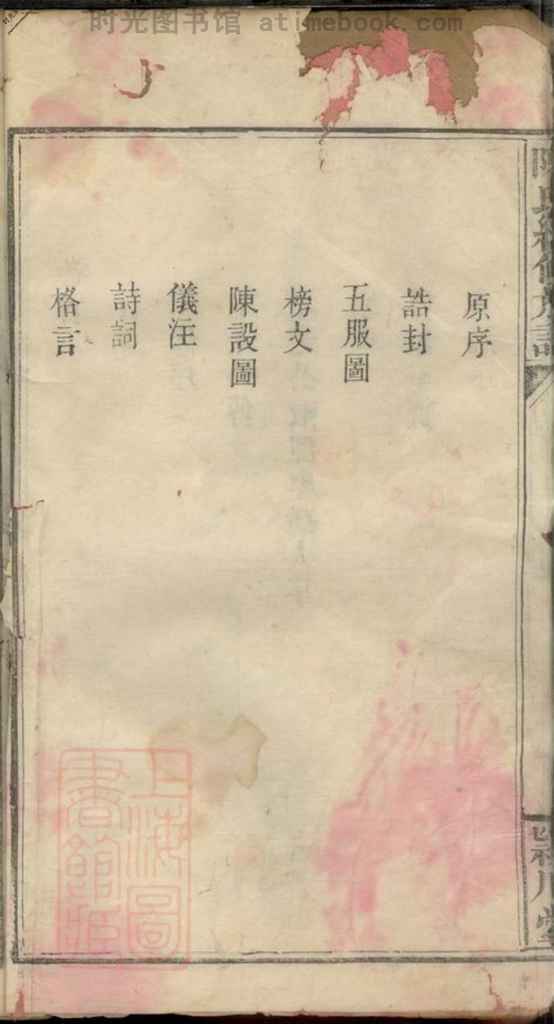 时光图书馆 atimebook.com
原序
誥封
五服圖
榜文
陳設圖
儀注
詩詞
格言
上海圖
書館藏